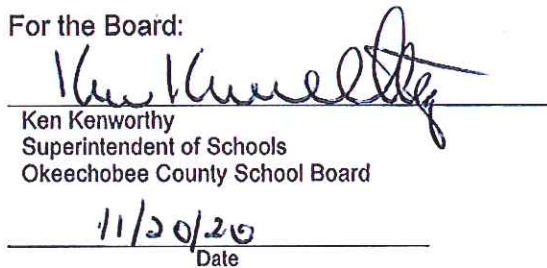 For the Board:
Ken Kenworthy
Ken Kenworthy
Superintendent of Schools
Okeechobee County School Board
11/20/20
Date